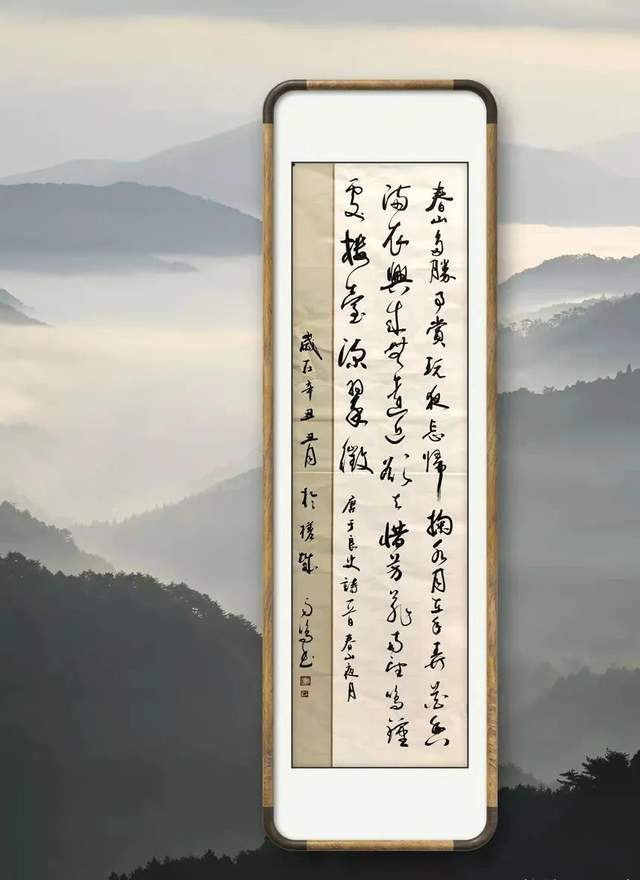 春山多勝事賞玩夜忘歸掬水月在手弄花香
滿衣興來無遠近欲去惜芳菲南望鳴鐘
處樓臺深翠微 唐于良史詩一首春山夜月
歲在辛丑五月於城书